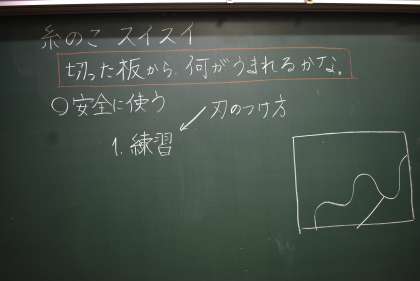 糸のこ スイスイ
切った板から、何がうまれるかな。
○安全に使う
刃のつけ方
1. 練習